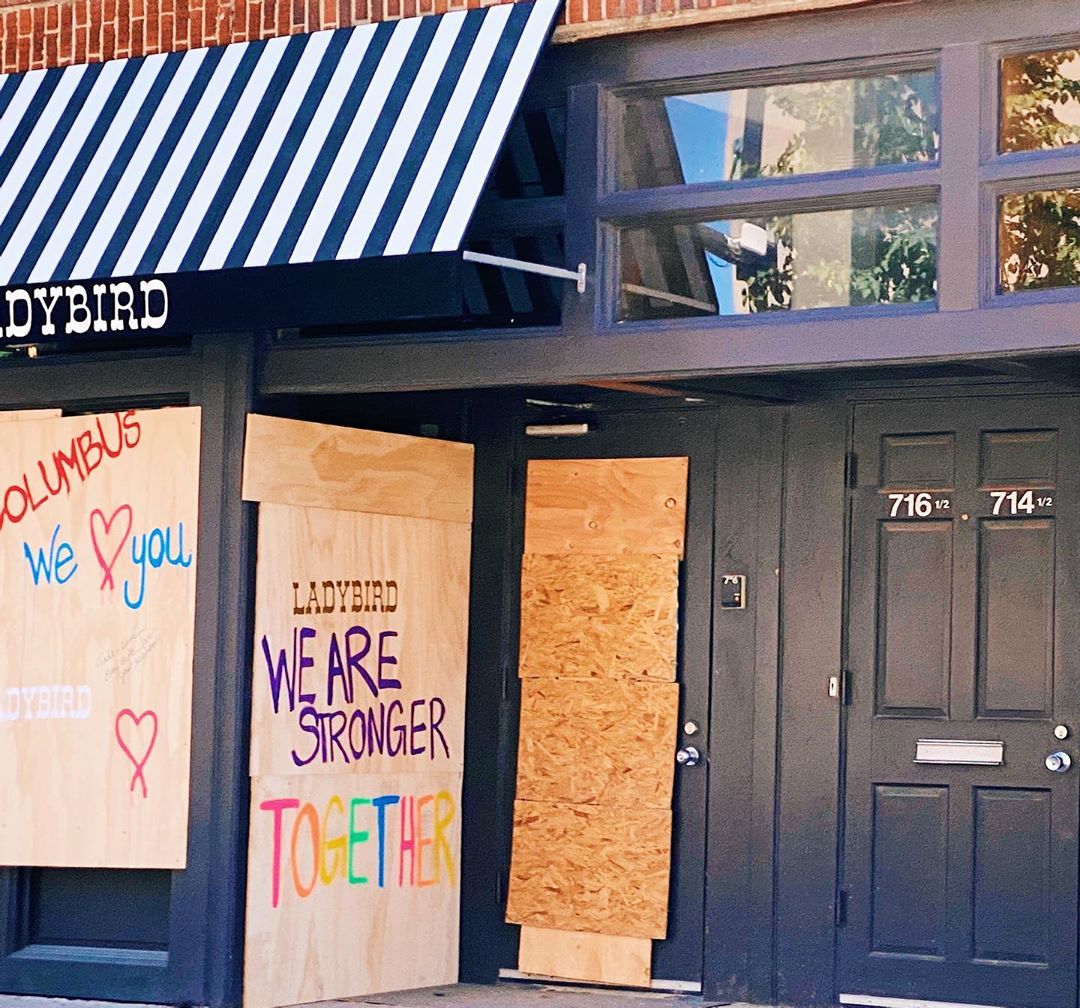 ADYBIRD
COLUMBUS
We you
ADYBIRD
LADYBIRD
WE ARE
STRONGER
TOGETHER
716 1/2 714 1/2